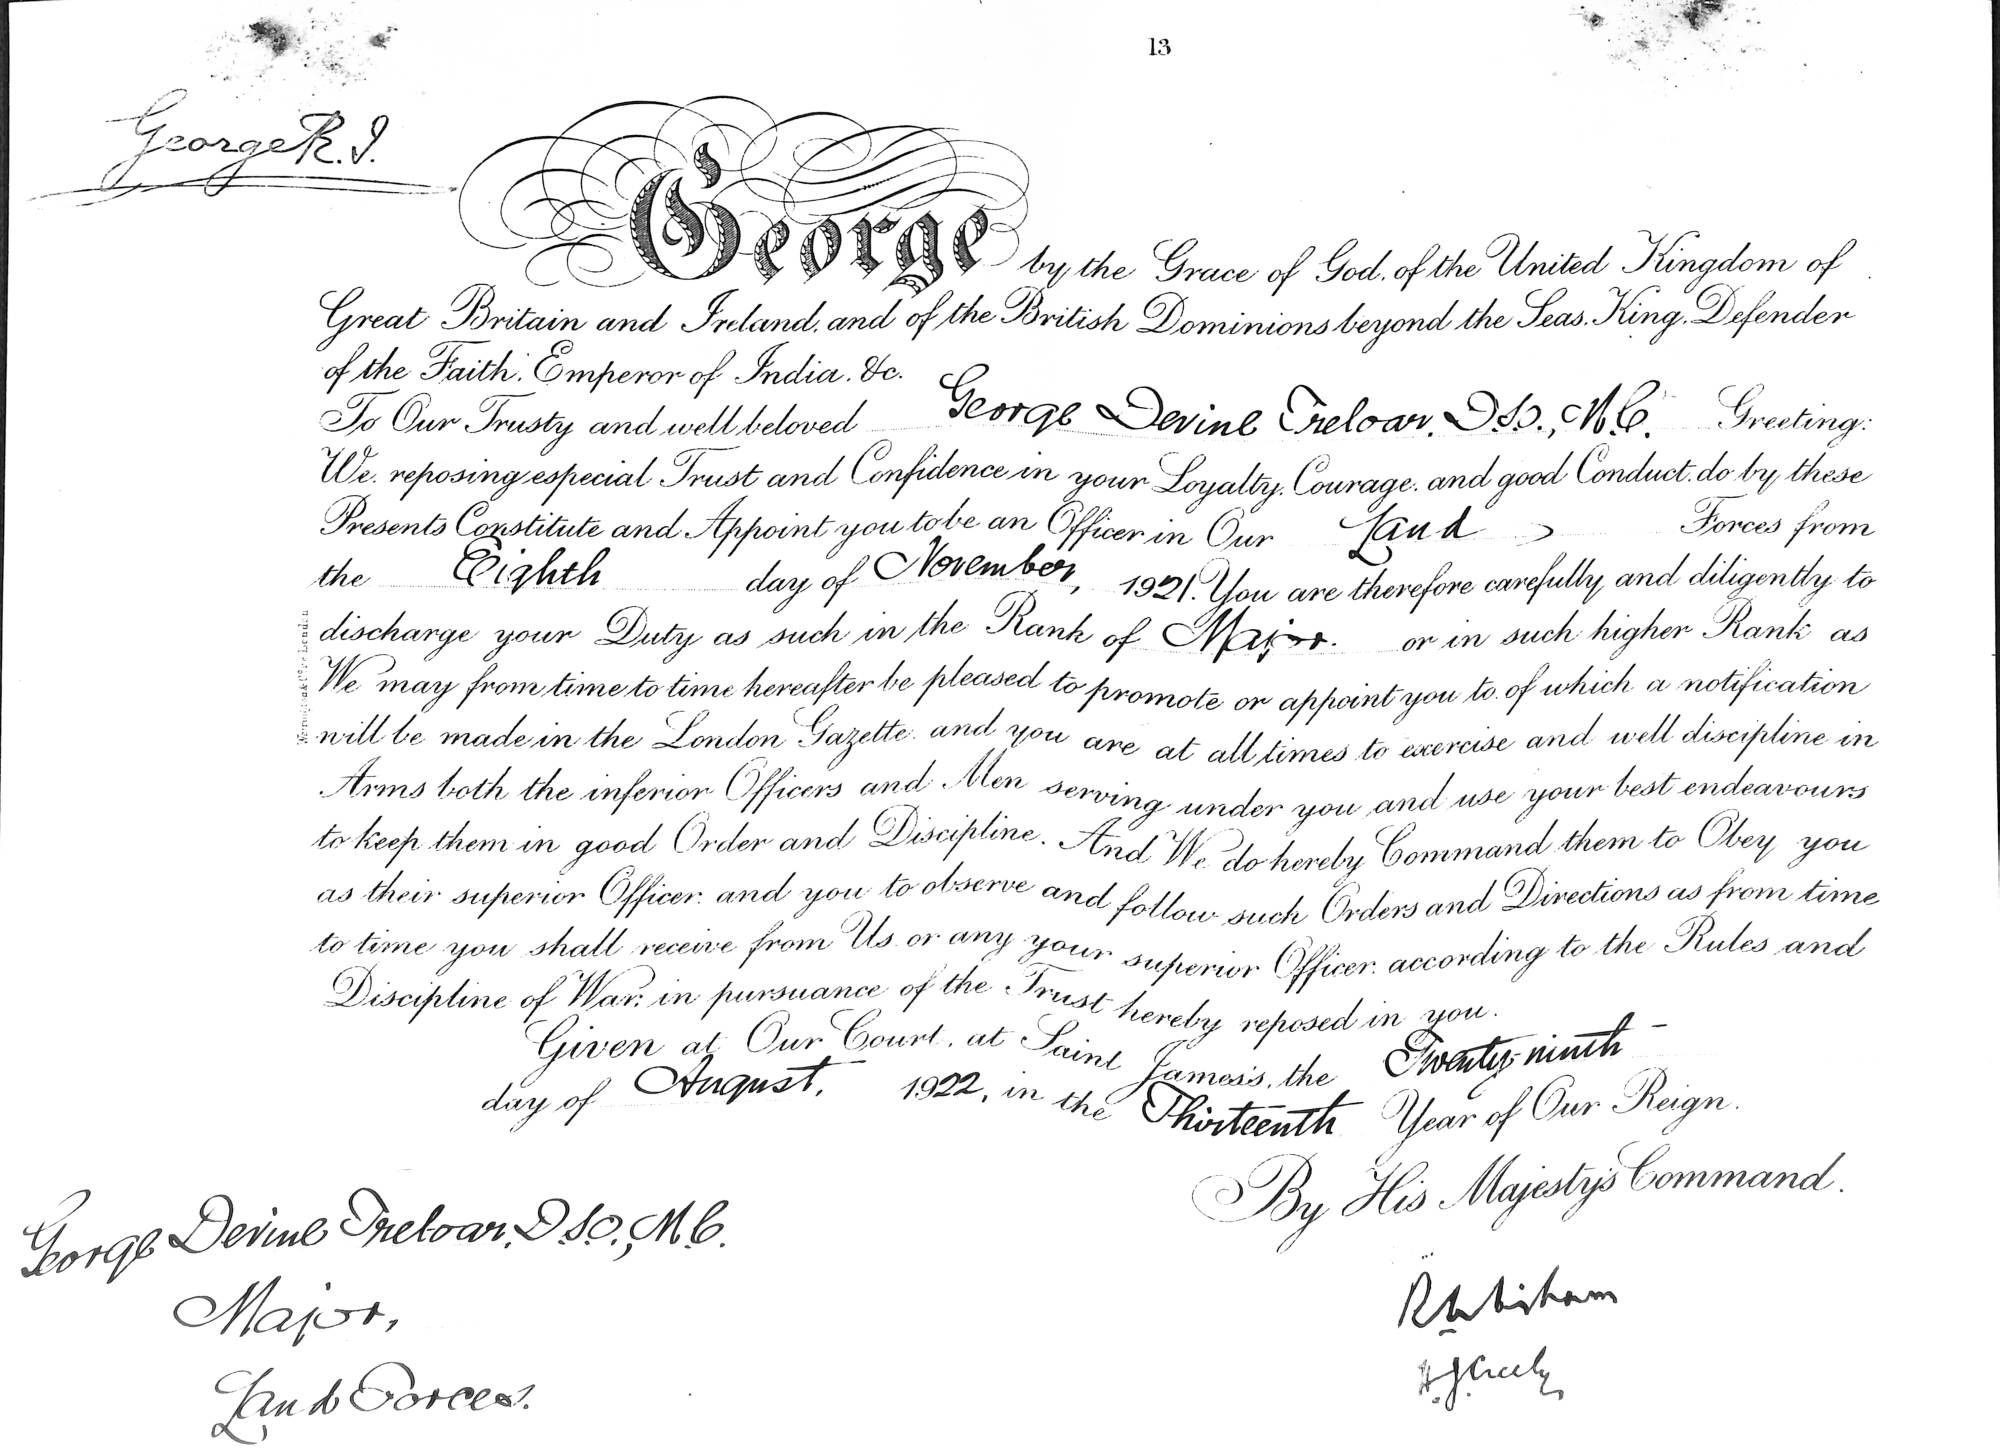 13
George R. I.
George by the Grace of God, of the United Kingdom of
Great Britain and Ireland, and of the British Dominions beyond the Seas, King, Defender
of the Faith, Emperor of India, &c.
To Our Trusty and well beloved George Devine Treloar, D.S.O., M.C. Greeting:
We, reposing especial Trust and Confidence in your Loyalty, Courage, and good Conduct, do by these
Presents Constitute and Appoint you to be an Officer in Our Land Forces from
the Eighth day of November, 1921. You are therefore carefully and diligently to
discharge your Duty as such in the Rank of Major. or in such higher Rank as
We may from time to time hereafter be pleased to promote or appoint you to, of which a notification
will be made in the London Gazette, and you are at all times to exercise and well discipline in
Arms both the inferior Officers and Men serving under you and use your best endeavours
to keep them in good Order and Discipline. And We do hereby Command them to Obey you
as their superior Officer, and you to observe and follow such Orders and Directions as from time
to time you shall receive from Us, or any your superior Officer, according to the Rules and
Discipline of War, in pursuance of the Trust hereby reposed in you.
Given at Our Court, at Saint James's, the Twenty-ninth
day of August, 1922, in the Thirteenth Year of Our Reign.
By His Majesty's Command.
George Devine Treloar, D.S.O., M.C.
Major,
Land Forces.